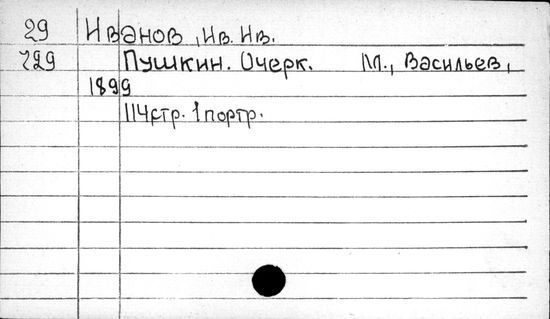 29 Иванов, Ив. Ив.
729 Пушкин. Очерк. М., Васильев,
1899
114 стр. 1 портр.